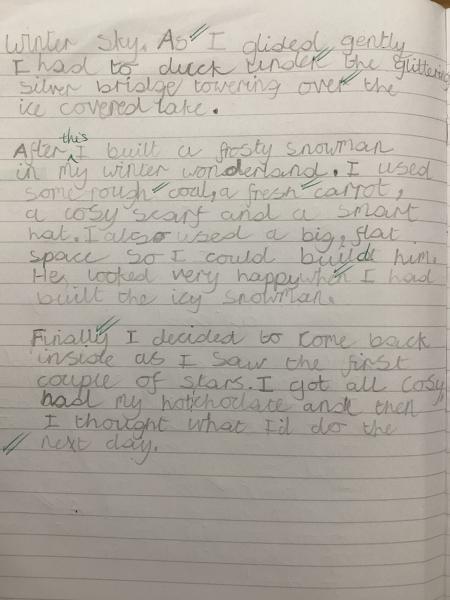 winter sky. As I glided gently
I had to duck under the glittering
silver bridge towering over the
ice covered lake.
After this I built a frosty snowman
in my winter wonderland. I used
some rough coal, a fresh carrot,
a cosy scarf and a smart
hat. I also used a big, flat
space so I could build him.
He looked very happy when I had
built the icy snowman.
Finally I decided to come back
inside as I saw the first
couple of stars. I got all cosy,
had my hotchoclate and then
I thought what I'd do the
next day.